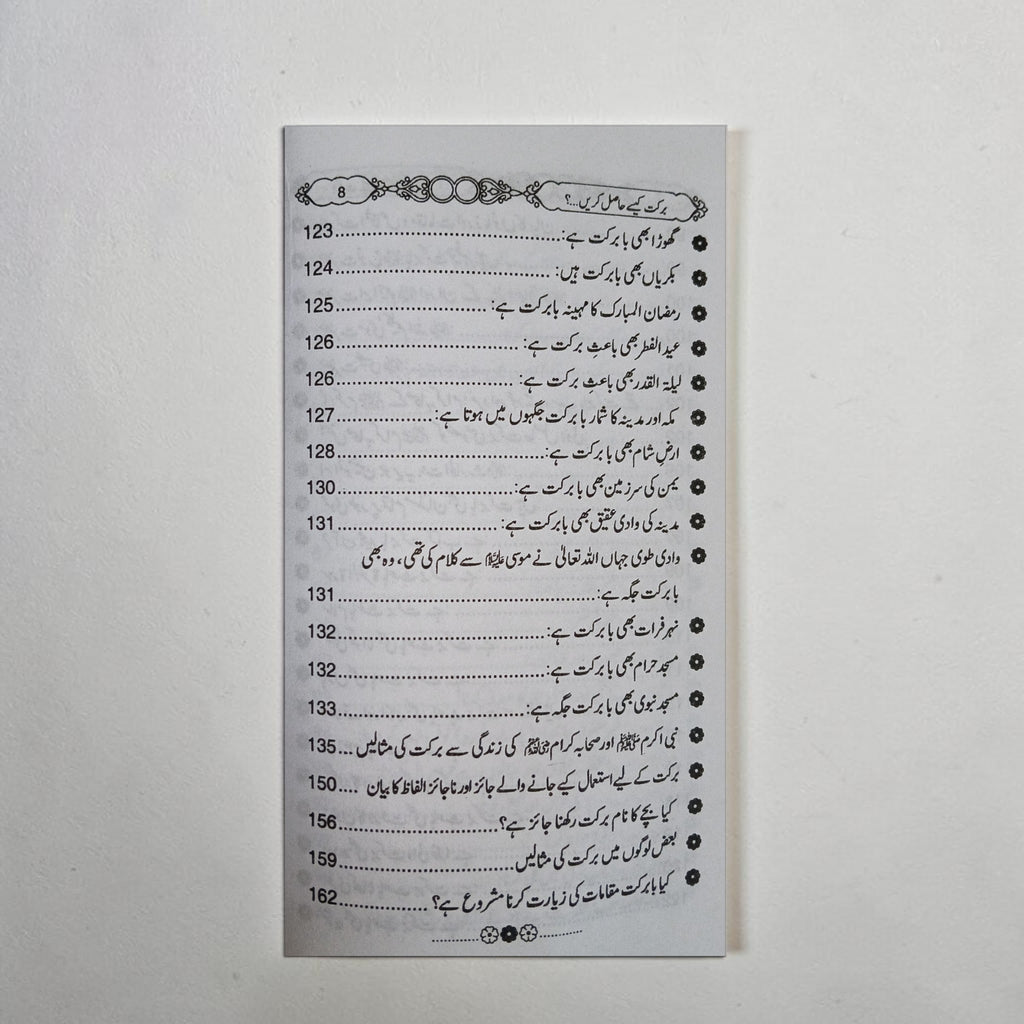 برکت کیسے حاصل کریں...؟ 8
گھوڑا بھی بابرکت ہے:............................123
بکریاں بھی بابرکت ہیں: ............................124
رمضان المبارک کا مہینہ بابرکت ہے: ...................125
عید الفطر بھی باعثِ برکت ہے: .......................126
لیلۃ القدر بھی باعثِ برکت ہے: .......................126
مکہ اور مدینہ کا شمار بابرکت جگہوں میں ہوتا ہے:............127
ارضِ شام بھی بابرکت ہے:..........................128
یمن کی سرزمین بھی بابرکت ہے:......................130
مدینہ کی وادی عقیق بھی بابرکت ہے: ....................131
وادی طوی جہاں اللہ تعالیٰ نے موسی علیہ السلام سے کلام کی تھی، وہ بھی
بابرکت جگہ ہے:................................131
نہر فرات بھی بابرکت ہے:..........................132
مسجد حرام بھی بابرکت ہے:..........................132
مسجد نبوی بھی بابرکت جگہ ہے:.......................133
نبی اکرم ﷺ اور صحابہ کرام رضی اللہ عنہم کی زندگی سے برکت کی مثالیں ...135
برکت کے لیے استعمال کیے جانے والے جائز اور ناجائز الفاظ کا بیان ....150
کیا بچے کا نام برکت رکھنا جائز ہے؟....................156
بعض لوگوں میں برکت کی مثالیں........................159
کیا بابرکت مقامات کی زیارت کرنا مشروع ہے؟ ..............162